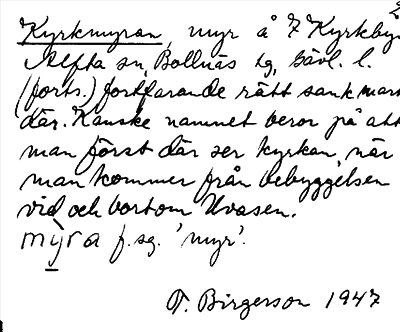 Kyrkmyran, myr å 7 Kyrkby 2
Alfta sn, Bollnäs tg, Gävl. l.
(forts.) fortfarande rätt sank mark
där. Kanske namnet beror på att
man först där ser kyrkan, när
man kommer från bebyggelsen
vid och bortom Uvasen.
myra f. sg. 'myr'.
T. Birgerson 1947